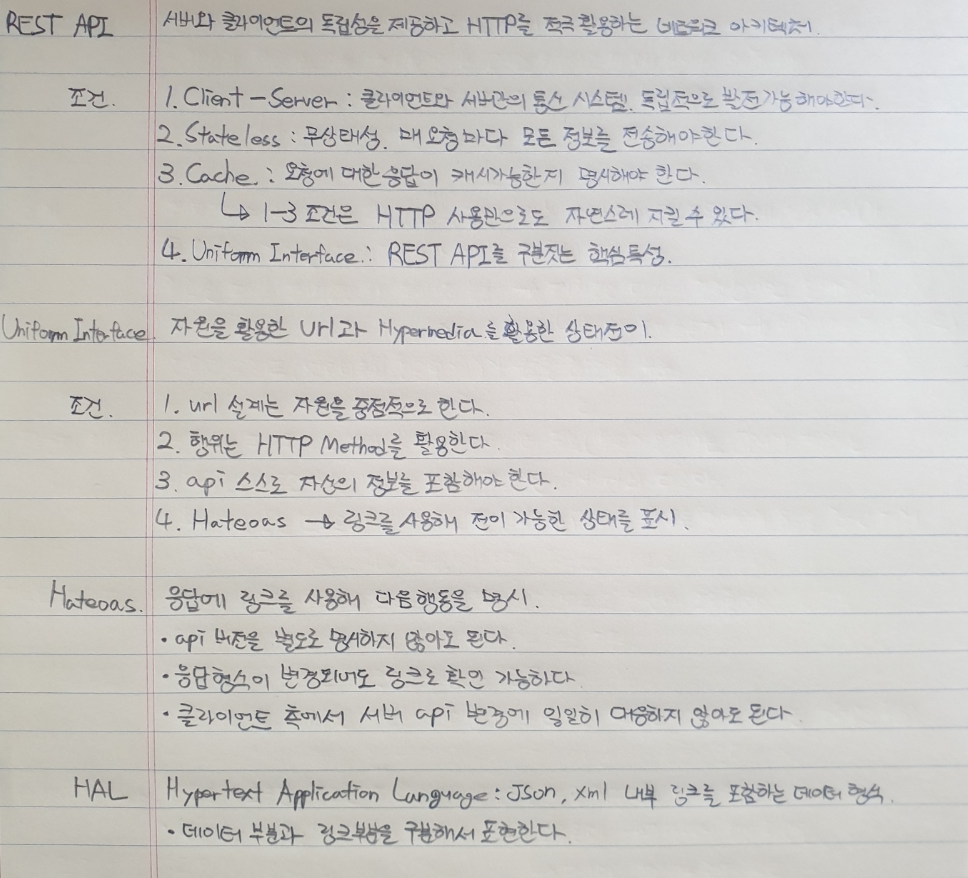 REST API 서버와 클라이언트의 독립성을 제공하고 HTTP를 적극 활용하는 네트워크 아키텍처.
조건. 1. Client-Server : 클라이언트와 서버간의 통신 시스템. 독립적으로 발전가능해야한다.
2. Stateless : 무상태성. 매 요청마다 모든 정보를 전송해야한다.
3. Cache. : 요청에 대한 응답이 캐시가능한지 명시해야 한다.
↳ 1-3 조건은 HTTP 사용만으로도 자연스레 지킬 수 있다.
4. Uniform Interface. : REST API를 구분짓는 핵심특성.
Uniform Interface 자원을 활용한 Url과 Hypermedia를 활용한 상태전이.
조건. 1. url 설계는 자원을 중점적으로 한다.
2. 행위는 HTTP Method를 활용한다.
3. api 스스로 자신의 정보를 포함해야 한다.
4. Hateoas → 링크를 사용해 전이 가능한 상태를 표시.
Hateoas. 응답에 링크를 사용해 다음 행동을 명시.
· api 버전을 별도로 명시하지 않아도 된다.
· 응답형식이 변경되어도 링크로 확인 가능하다
· 클라이언트 측에서 서버 api 변경에 일일히 대응하지 않아도 된다.
HAL Hypertext Application Language : Json, xml 내부 링크를 포함하는 데이터 형식.
· 데이터 부분과 링크부분을 구분해서 표현한다.